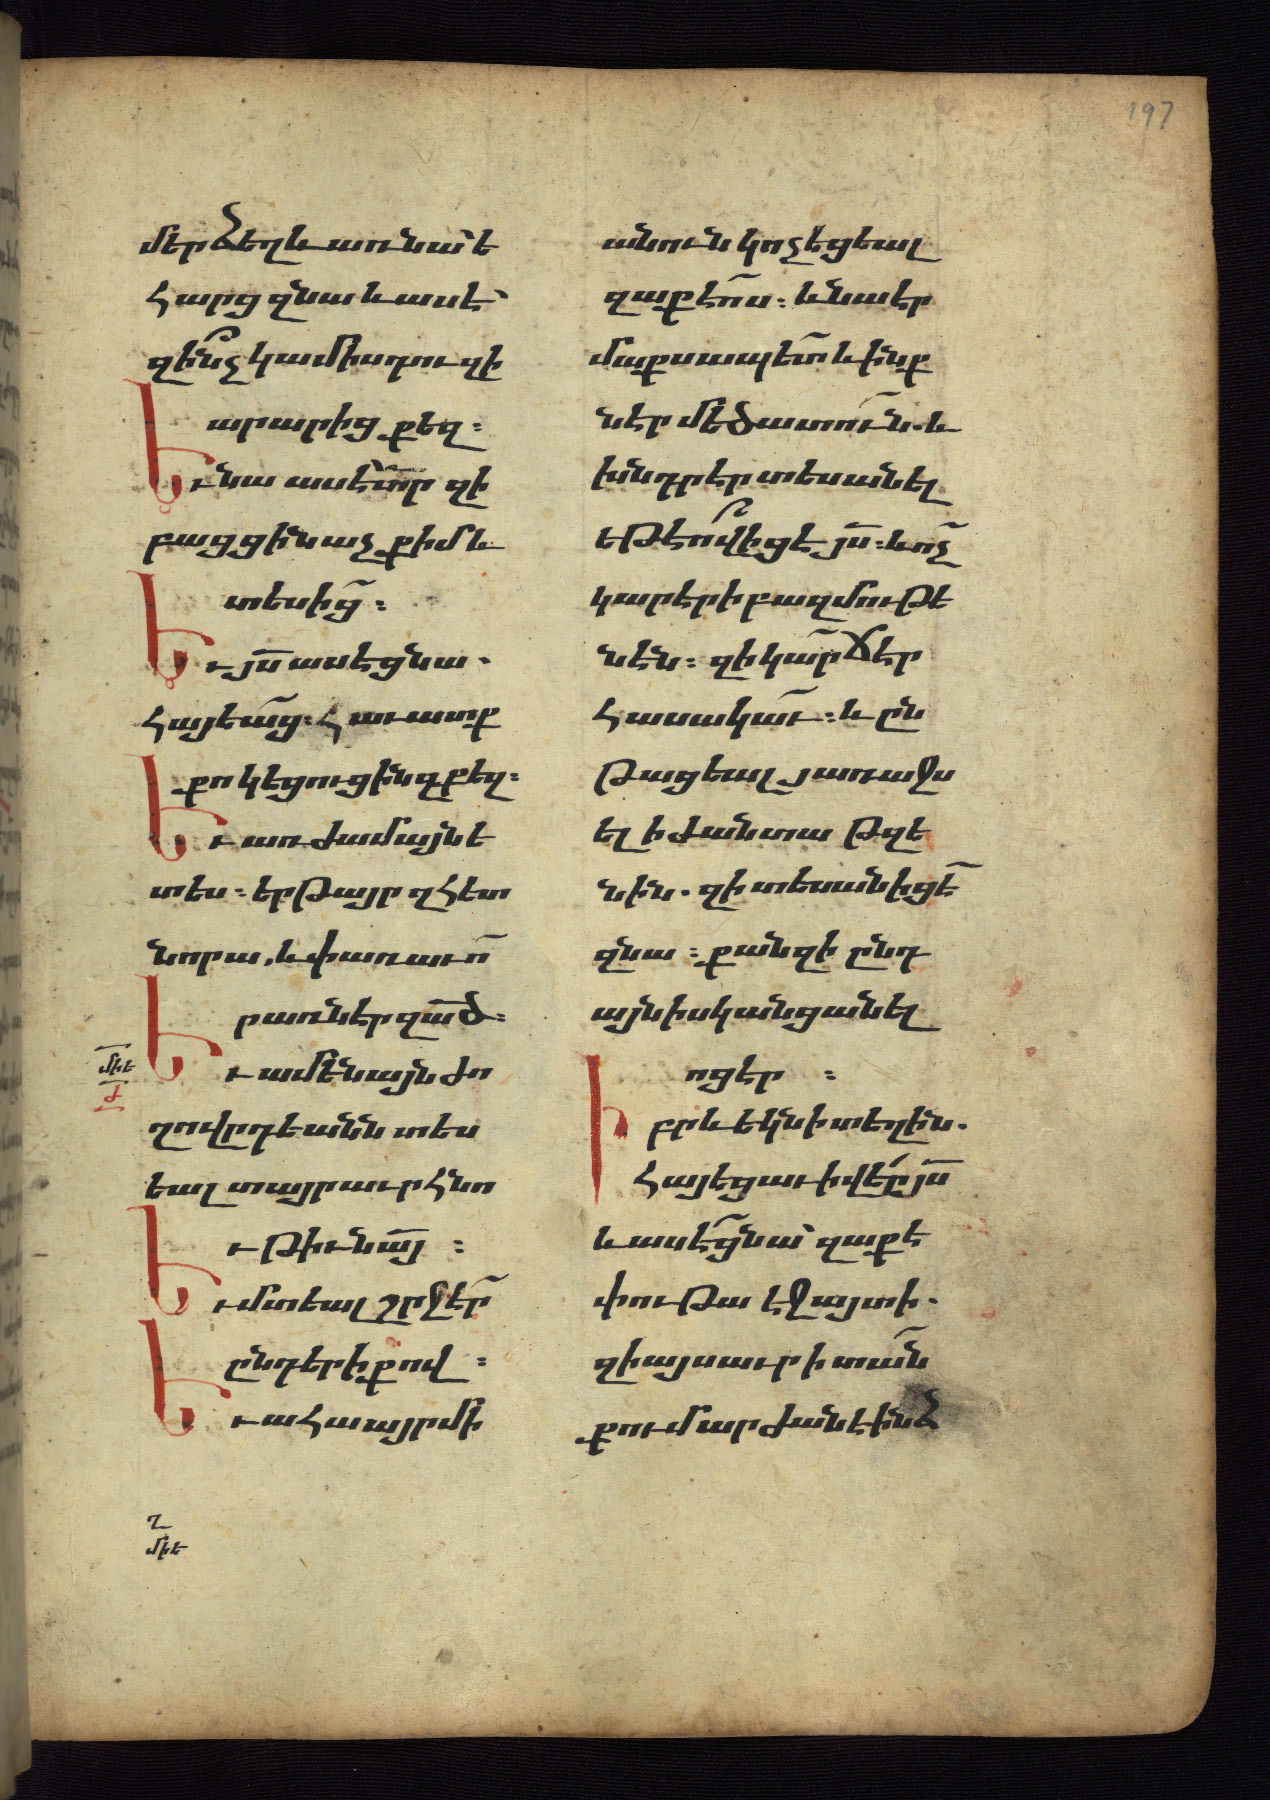 197
մերձեղև առնա՝ե
հարց զնա և ասէ՝
զի՞նչ կամիս դու զի
արարից քեզ։
Եւ նա ասէ՝ տ̅ր զի
բացցին աչք իմ և
տեսից̅։
Եւ յս̅ ասէ ցնա.
հայեաց̅։ հաւատք
քո կեցուցին զքեզ։
Եւ առժամայն ե
տես։ երթայր զհետ
նորա, և փառաւո̅
րառնէր զա̅ծ։
Եւ ամենայն ժո
ղովրդեանն տես
եալ տայր աւրհնո
ւթիւն ա̅յ։
Եւ մտեալ շրջէր̅
ընդ երիքով։
Եւ ահա այր մի
անուն կոչեցեալ
զաքէո̅ս։ և նա էր
մաքսապետ̅ և ինք
ն էր մեծատու̅ն. և
խնդրէր տեսանել
եթէ ո՞վ իցէ յս̅։ և ոչ̅
կարէր ի բազմութե
նէն։ զի կա̅րճ էր
հասակաւ̅։ և ըն
թացեալ յառաջս
ել ի ժանտա թզե
նին. զի տեսանիցէ̅
զնա։ քանզի ընդ
այն իսկ անցանել
ոցեր։
Իբրև եկն ի տեղին.
հայեցաւ ի վեր յս̅
և ասէ ց̅նա՝ զաքէ
փութա էջ այտի.
զի այսաւր ի տա̅ն
քում արժան է ինձ
մխե
ժ
ղ
մխե